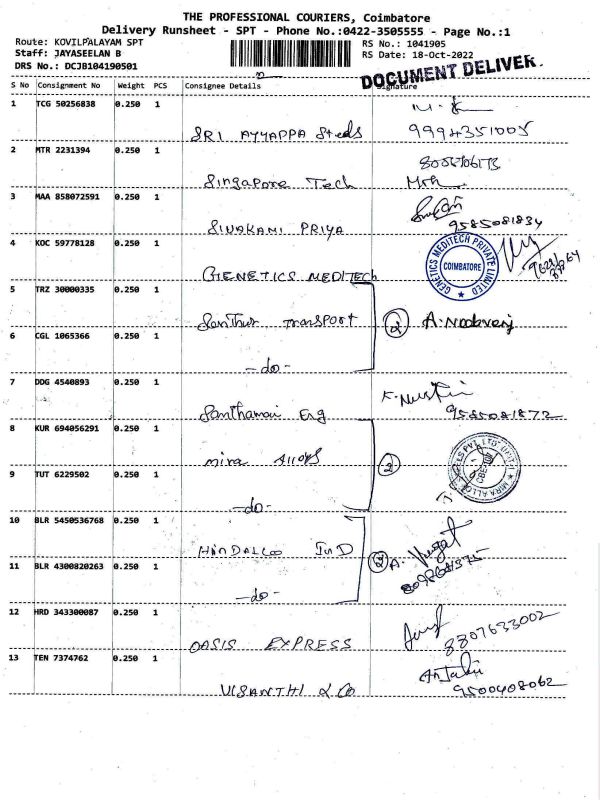 THE PROFESSIONAL COURIERS, Coimbatore
Delivery Runsheet - SPT - Phone No.:0422-3505555 - Page No.:1
Route: KOVILPALAYAM SPT
Staff: JAYASEELAN B
DRS No.: DCJB104190501
RS No.: 1041905
RS Date: 18-Oct-2022
DOCUMENT DELIVER.
S No Consignment No Weight PCS Consignee Details Signature
1 TCG 50256838 0.250 1
SRI AYYAPPA Steels 9994351005
2 MTR 2231394 0.250 1
Singapore Tech
3 MAA 858072591 0.250 1
SIVAKAMI PRIYA 9585081834
4 KOC 59778128 0.250 1
GENETICS MEDITECH
GENETICS MEDITECH PRIVATE LIMITED
COIMBATORE
5 TRZ 30000335 0.250 1
Santhur transport 2
6 CGL 1065366 0.250 1
-do-
7 DDG 4540893 0.250 1
Santhamani Eng 9585081872
8 KUR 694056291 0.250 1
mira Alloys 2
9 TUT 6229502 0.250 1
-do-
10 BLR 5450536768 0.250 1
HINDALCO IND 2
11 BLR 4300820263 0.250 1
-do-
12 HRD 343300087 0.250 1
OASIS EXPRESS 8807633002
13 TEN 7374762 0.250 1
VISANTHI & Co 9500408062